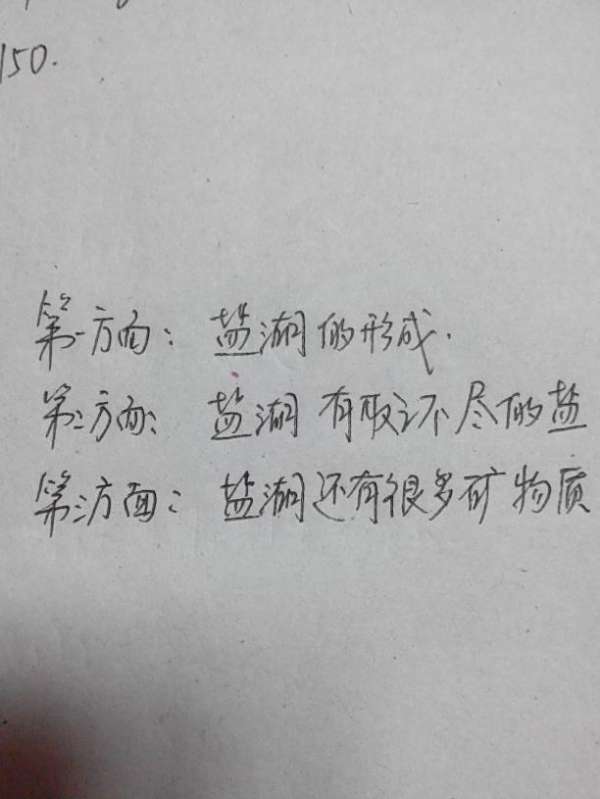 150.
第一方面：盐湖的形成.
第二方面：盐湖有取之不尽的盐
第三方面：盐湖还有很多矿物质